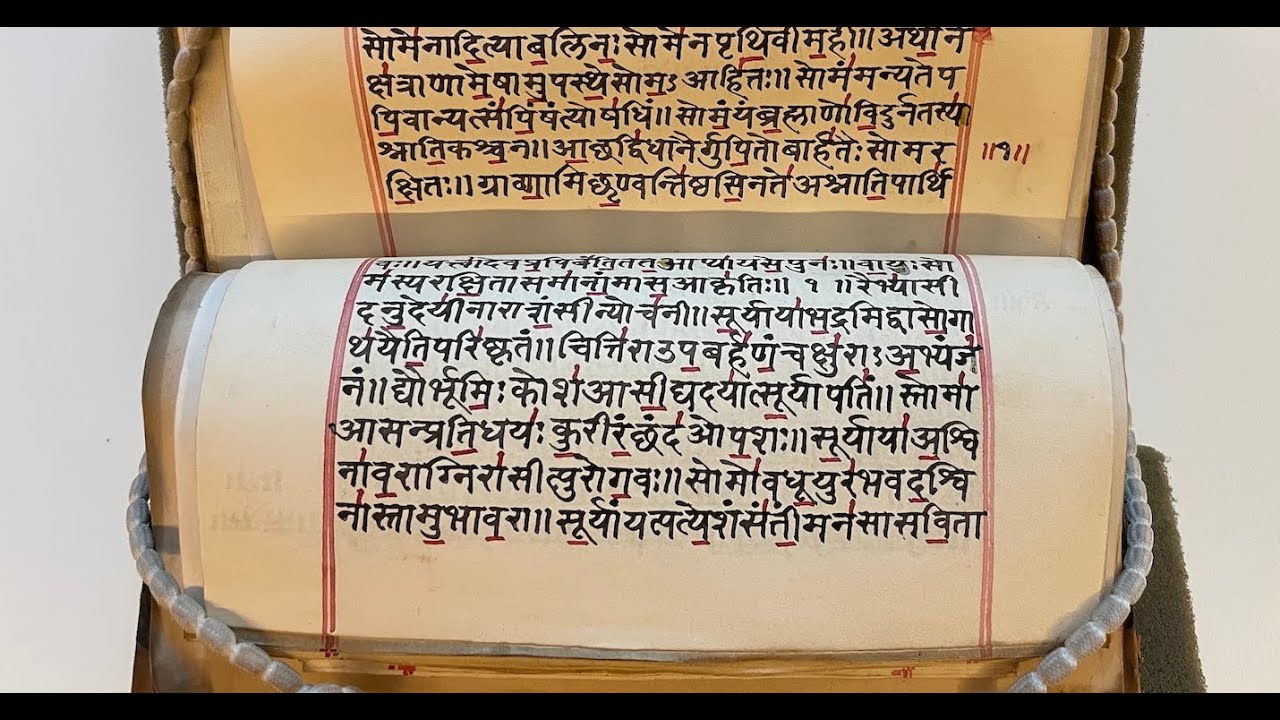 सोमेनादित्याबलिनः सोमेनपृथिवीमही॥ अथोन
क्षत्राणामेषामुपस्थेसोमः आहितः॥ सोमंमन्यतेप
पिवान्यत्संपिंषंत्योषधिं॥ सोमंयंब्रह्माणोविदुर्नतस्या
श्नातिकश्चन॥ आच्छद्विधानैर्गुपितोबार्हतैः सोमर ॥१॥
क्षितः॥ ग्राव्णामिच्छृण्वन्तिष्ठसिनतेअश्नातिपार्थि
वः॥ यत्त्वादेवप्रपिबंतिततआप्यायसेपुनः॥ वायुः सो
मस्यरक्षितासमानांमासआकृतिः॥ १ ॥ रैभ्यासी
दनुदेयीनाराशंसीन्योचनी॥ सूर्यायाभद्रमिद्वासोगा
थयैतिपरिष्कृतं॥ चित्तिराउपबर्हणंचक्षुराः अभ्यंज
नं॥ द्यौर्भूमिः कोशआसीद्यदयात्सूर्यापतिं॥ स्तोमा
आसन्प्रतिधयः कुरीरंछंदओपशः॥ सूर्यायाअश्वि
नावराग्निरासीत्पुरोगवः॥ सोमोवधूयुरभवदश्वि
नास्तामुभावरा॥ सूर्यांयत्पत्येशंसंतींमनसासविता